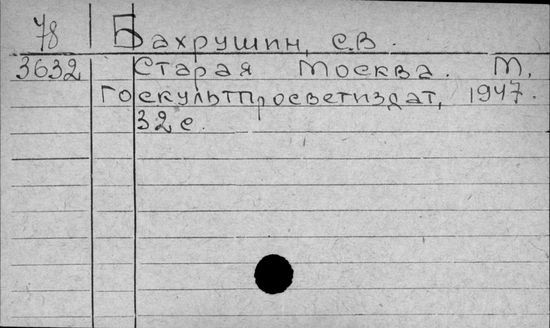 78 Бахрушин, С.В.
3632 Старая Москва. М,
Госкультпросветиздат, 1947.
32 с.